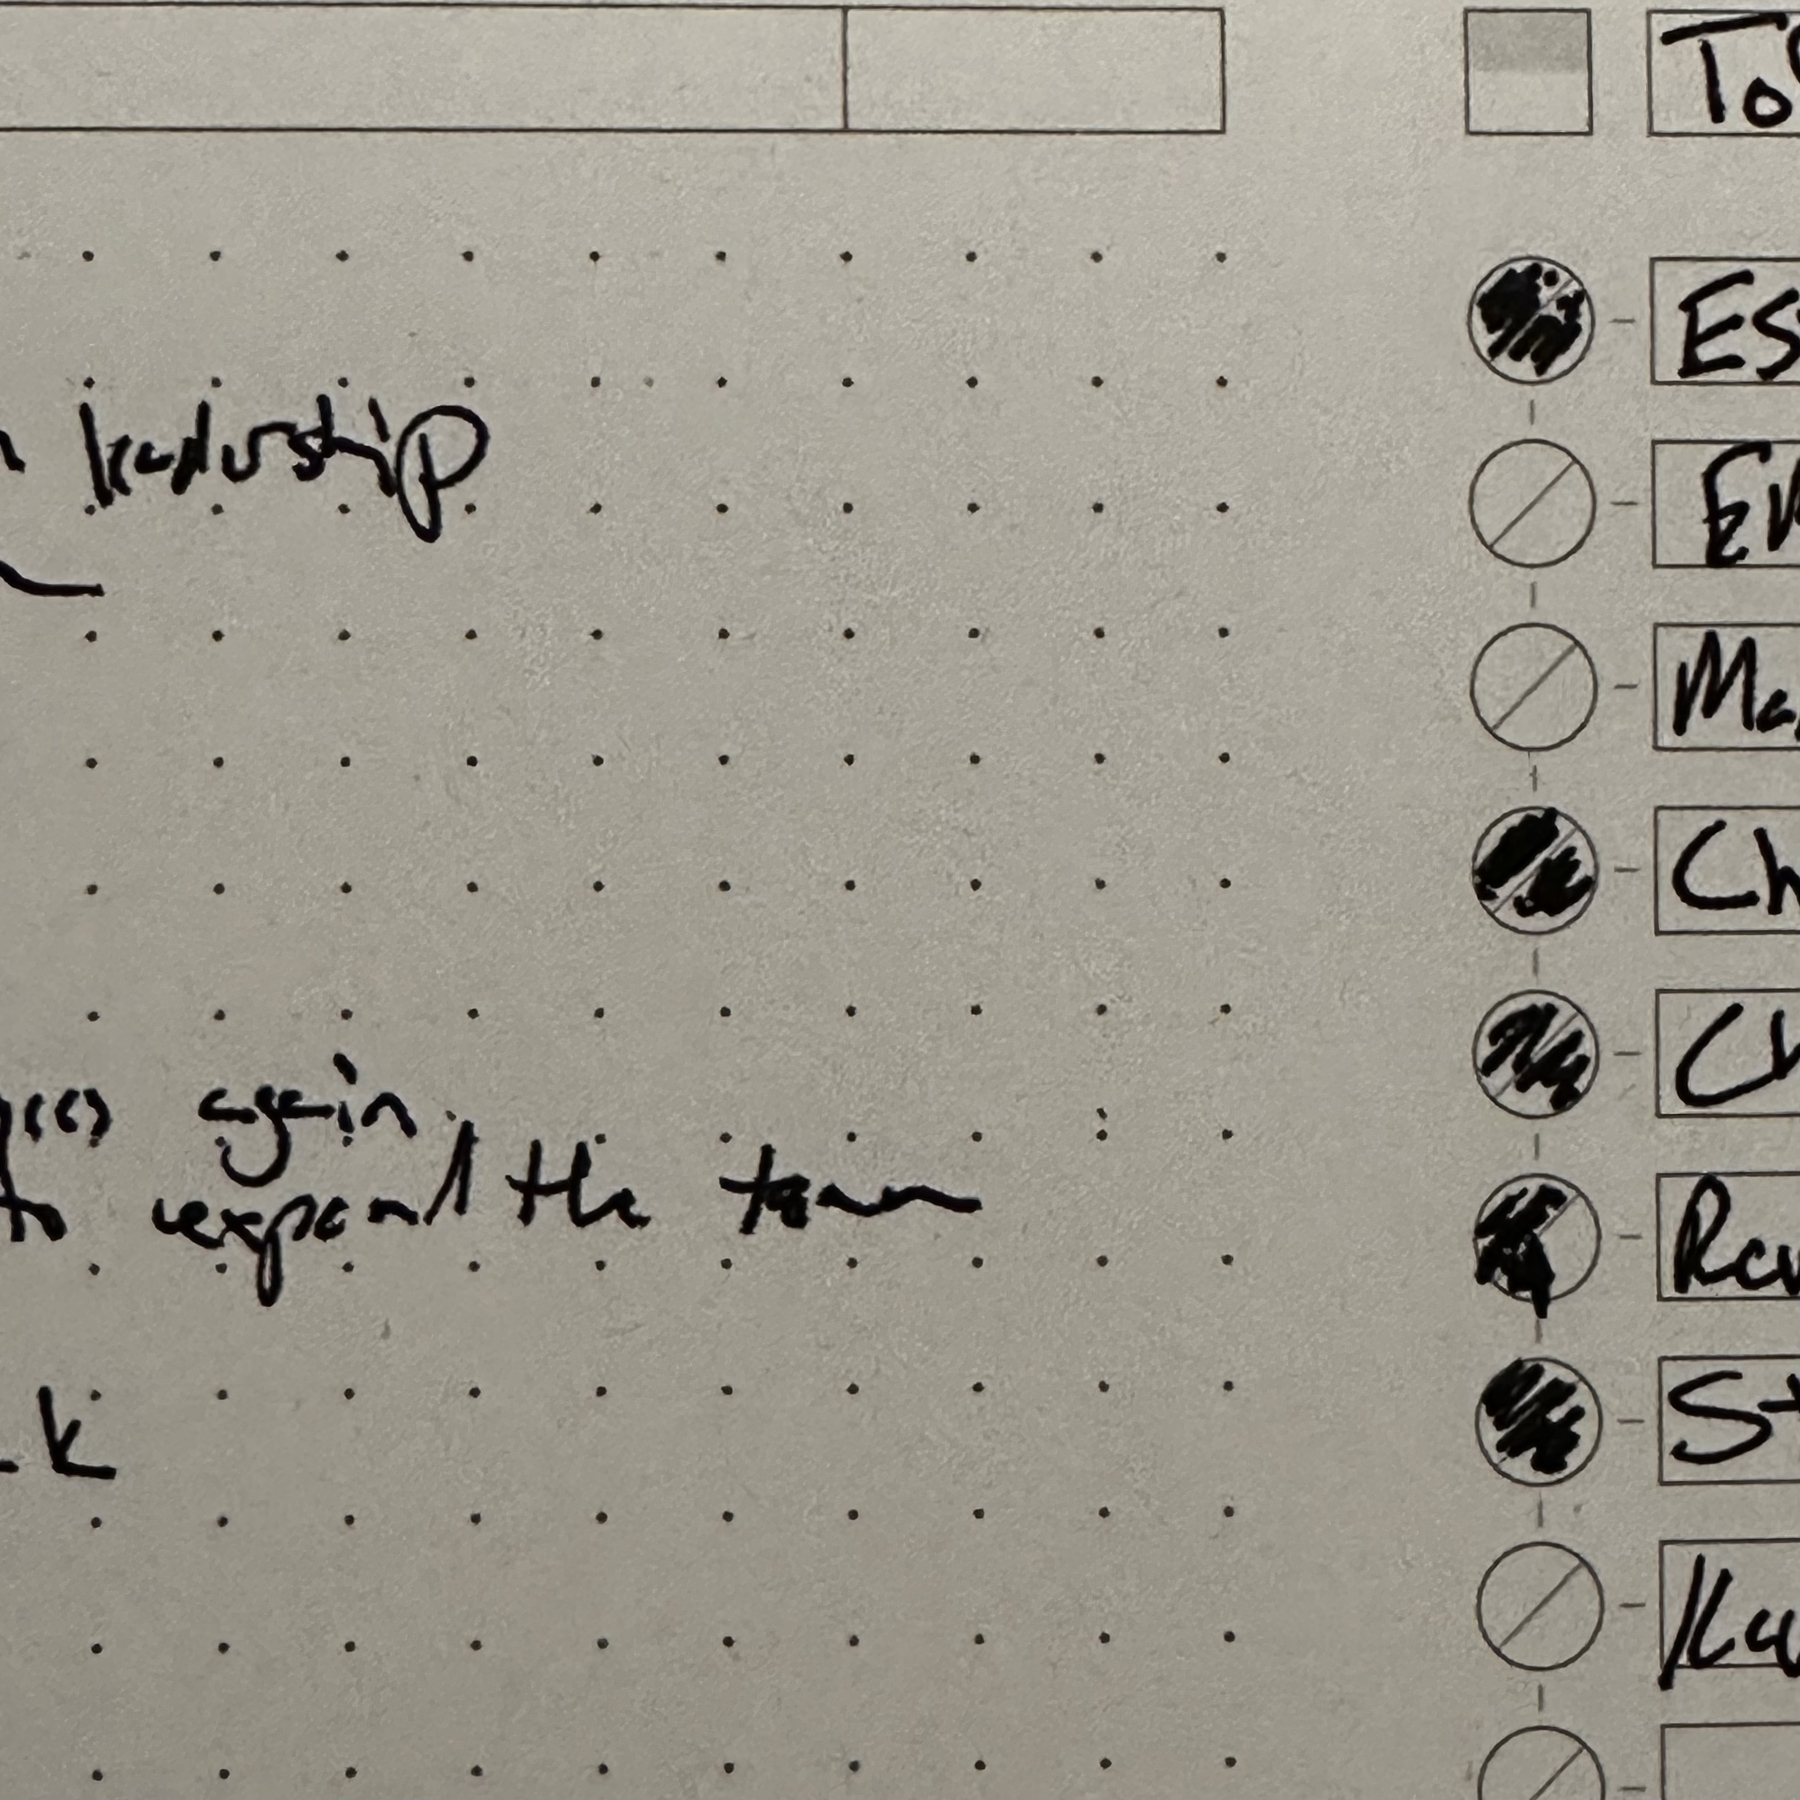 leadership
again
to expand the team
k
To
Es
En
Ma
Ch
Ch
Rev
St